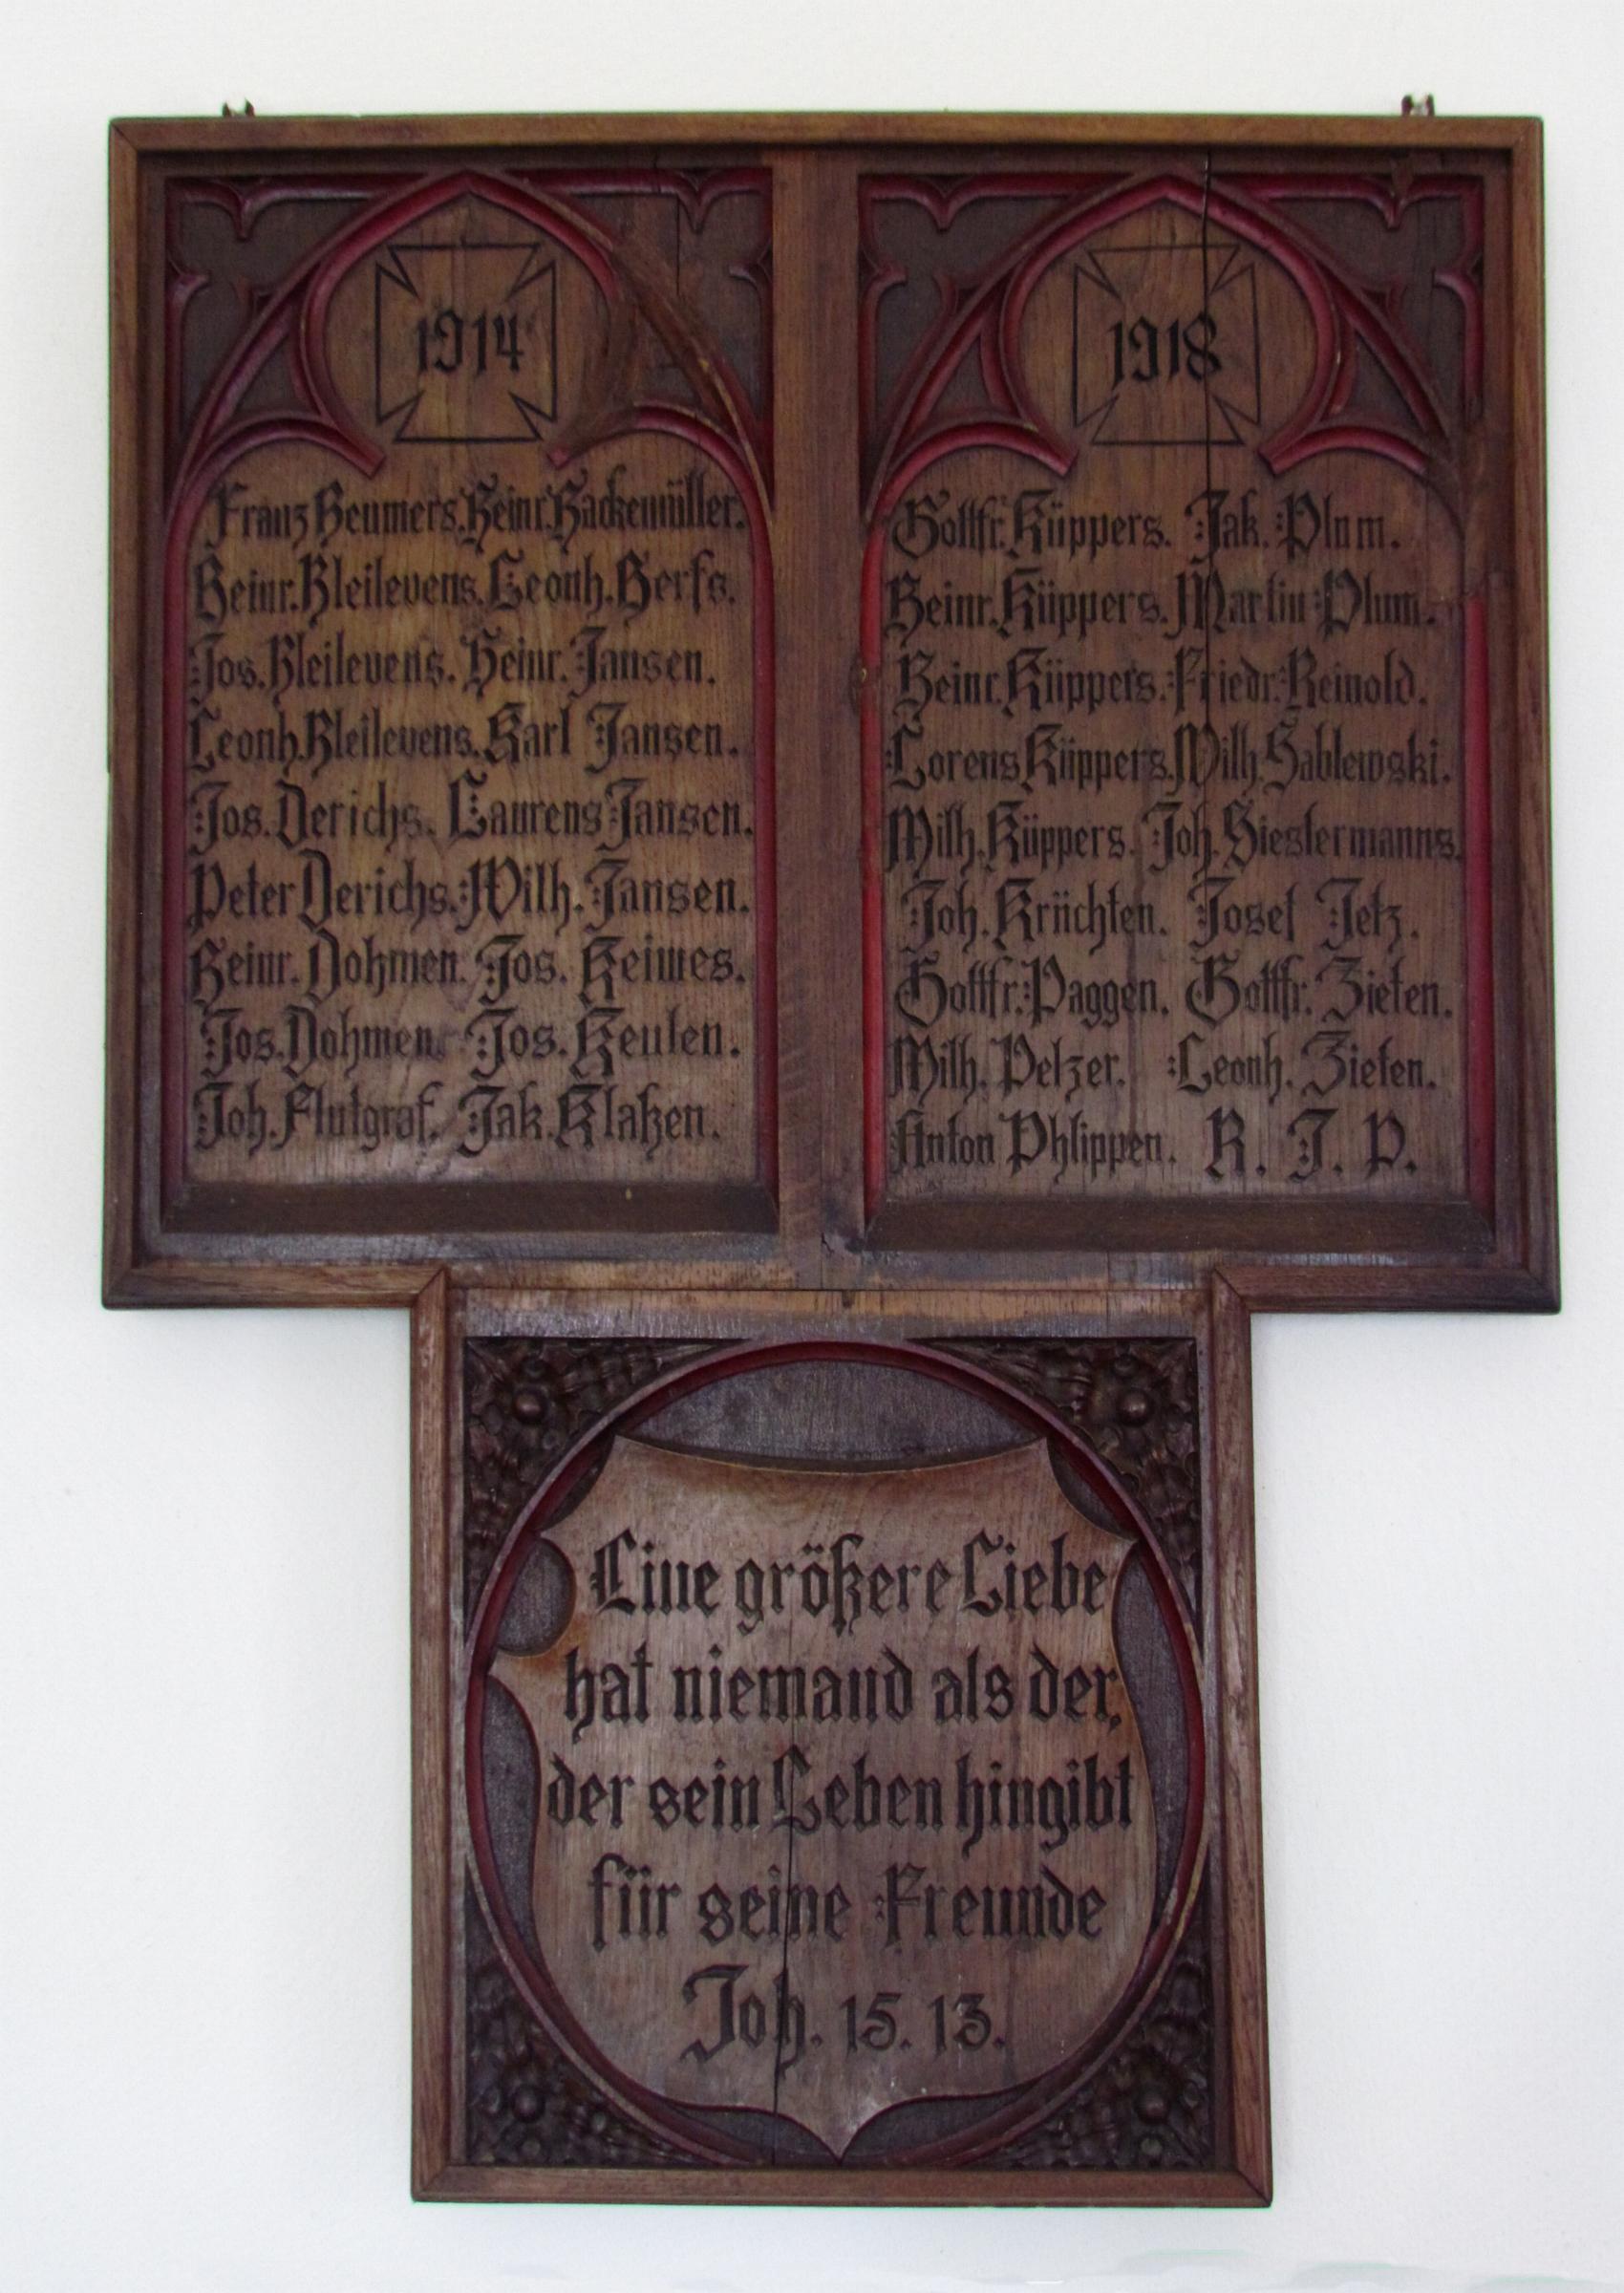 1914
Franz Beumers. Heinr. Hackemüller.
Heinr. Bleilevens. Leonh. Herfs.
Jos. Bleilevens. Heinr. Jansen.
Leonh. Bleilevens. Karl Jansen.
Jos. Derichs. Laurens Jansen.
Peter Derichs. Wilh. Jansen.
Heinr. Dohmen. Jos. Keimes.
Jos. Dohmen. Jos. Keulen.
Joh. Flutgraf. Jak. Klaßen.
1918
Gottfr. Küppers. Jak. Plum.
Heinr. Küppers. Martin Plum.
Heinr. Küppers. Friedr. Reinold.
Lorens Küppers. Wilh. Sablewski.
Wilh. Küppers. Joh. Siestermanns.
Joh. Krüchten. Josef Jetz.
Gottfr. Paggen. Gottfr. Zieten.
Wilh. Pelzer. Leonh. Zieten.
Anton Phlippen. R. I. P.
Eine größere Liebe
hat niemand als der,
der sein Leben hingibt
für seine Freunde
Joh. 15. 13.